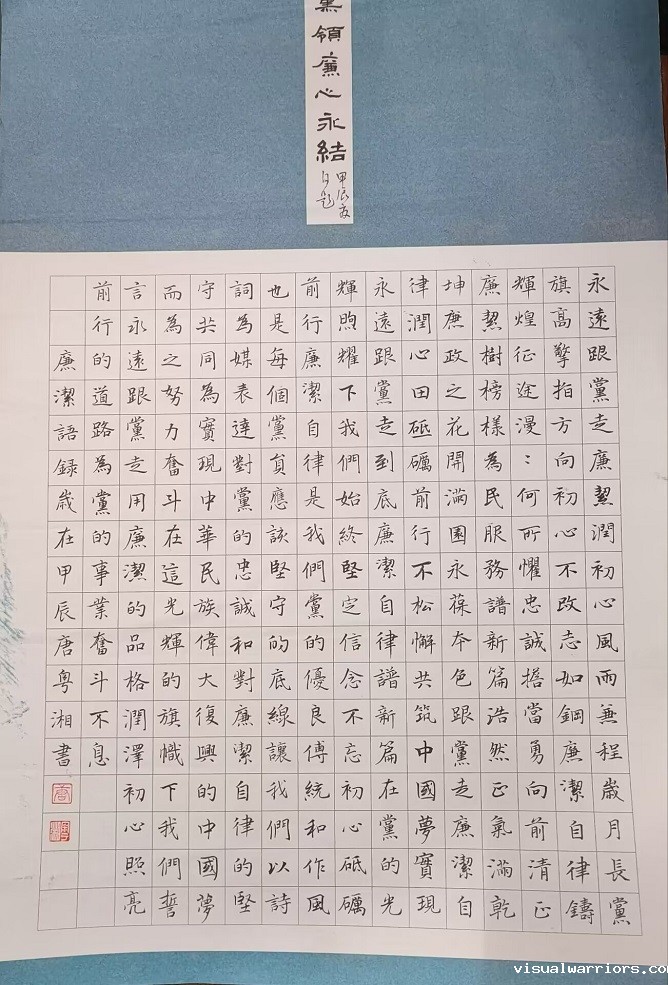 領廉心永結
甲辰夏
日題
永遠跟黨走廉潔潤初心風雨兼程歲月長黨
旗高擎指方向初心不改志如鋼廉潔自律鑄
輝煌征途漫：何所懼忠誠擔當勇向前清正
廉潔樹榜樣為民服務譜新篇浩然正氣滿乾
坤廉政之花開滿園永葆本色跟黨走廉潔自
律潤心田砥礪前行不松懈共筑中國夢實現
永遠跟黨走到底廉潔自律譜新篇在黨的光
輝照耀下我們始終堅定信念不忘初心砥礪
前行廉潔自律是我們黨的優良傳統和作風
也是每個黨員應該堅守的底線讓我們以詩
詞為媒表達對黨的忠誠和對廉潔自律的堅
守共同為實現中華民族偉大復興的中國夢
而為之努力奮斗在這光輝的旗幟下我們誓
言永遠跟黨走用廉潔的品格潤澤初心照亮
前行的道路為黨的事業奮斗不息
廉潔語録歲在甲辰唐粵湘書
visualwarriors.com